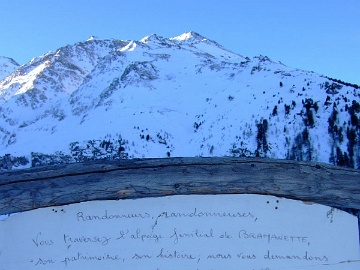 Randonneurs, randonneuses,
Vous traversez l'alpage familial de BREAMANETTE,
son patrimoine, son histoire; nous vous demandons